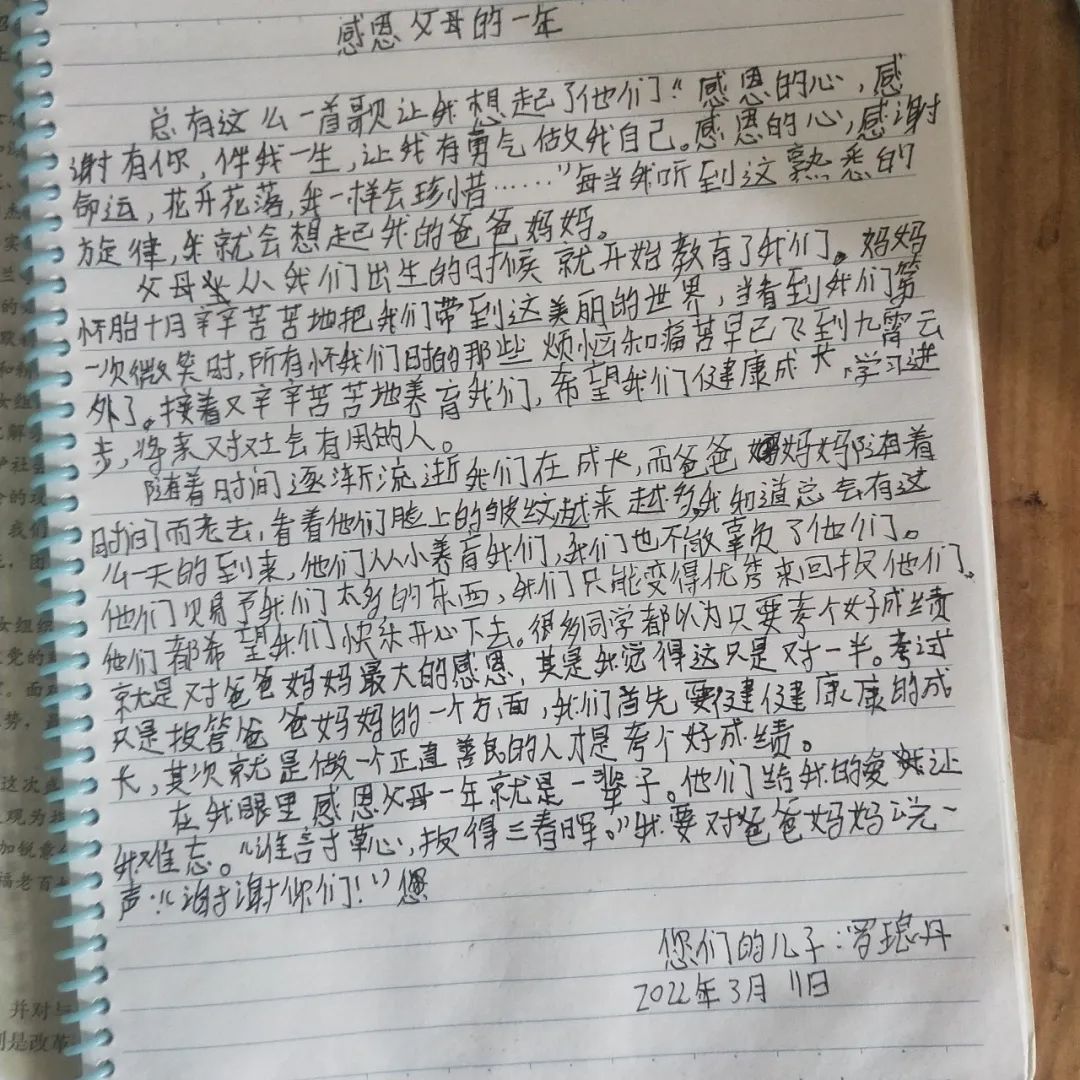 感恩父母的一年
总有这么一首歌让我想起了他们：“感恩的心，感
谢有你，伴我一生，让我有勇气做又我自己。感恩的心，感谢
命运，花开花落，我一样会珍惜……”每当我听到这熟悉的
旋律，我就会想起我的爸爸妈妈。
父母从我们出生的时候就开始教育了我们。妈妈
怀胎十月辛辛苦苦地把我们带到这美丽的世界，当看到我们第
一次微笑时，所有怀我们时的那些烦恼和痛苦早已飞到九霄云
外了。接着又辛辛苦苦地养育我们，希望我们健康成长，学习进
步，将来对社会有用的人。
随着时间逐渐流逝我们在成长，而爸爸妈妈随着
时间而老去，看着他们脸上的皱纹越来越多我知道总会有这
么一天的到来，他们从小养育我们，我们也不敢辜负了他们。
他们赐予我们太多的东西，我们只能变得优秀来回报他们。
他们都希望我们快乐开心下去。很多同学都以为只要考个好成绩
就是对爸爸妈妈最大的感恩，其是我觉得这只是对一半。考试
只是报答爸爸妈妈的一个方面，我们首先要健健康康的成
长，其次就是做一个正直善良的人才是考个好成绩。
在我眼里感恩父母一年就是一辈子。他们给我的爱让
我难忘。“谁言寸草心，报得三春晖。”我要对爸爸妈妈说一
声：“谢谢你们！”您
您们的儿子：罗丹
2022年3月11日